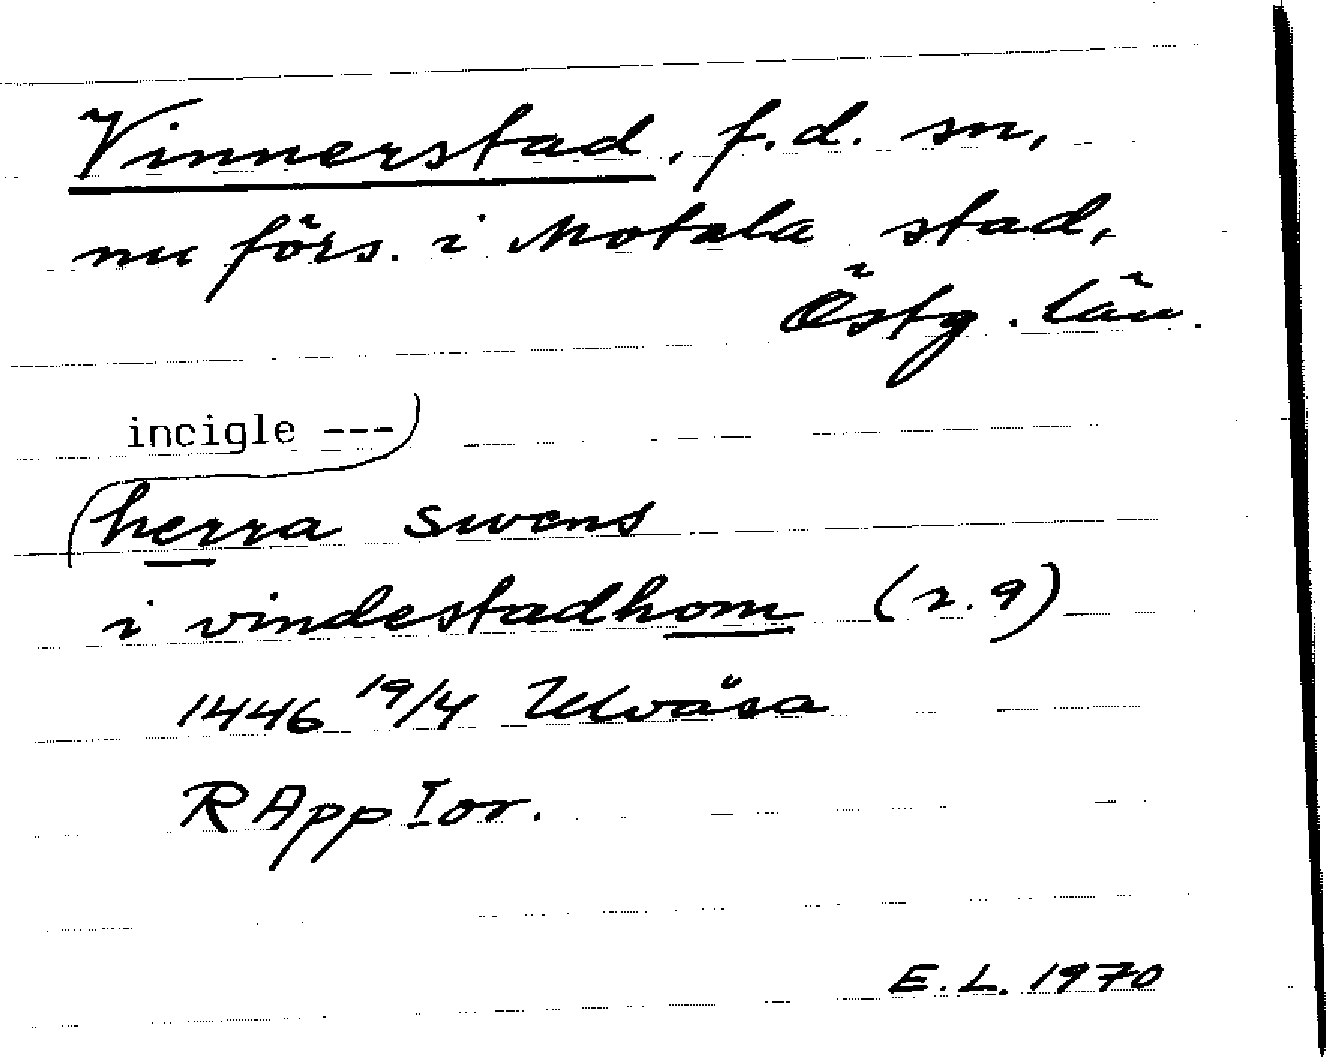 Vinnerstad, f.d. sn,
nu förs. i Motala stad,
Östg. län.
incigle ---
herra swens
i vindestadhom (r. 9)
1446 19/4 Ulvåsa
RAppIor.
E.L. 1970